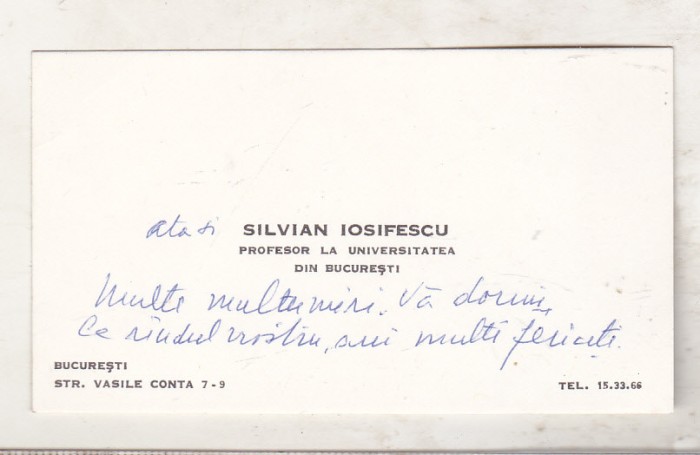 SILVIAN IOSIFESCU
PROFESOR LA UNIVERSITATEA
DIN BUCUREȘTI
Multe mulțumiri. Vă dorim,
La rîndul nostru, ani mulți fericiți.
BUCUREȘTI
STR. VASILE CONTA 7-9
TEL. 15.33.66